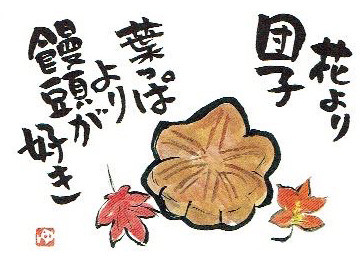 花より
団子
葉っぱ
より
饅頭が
好き